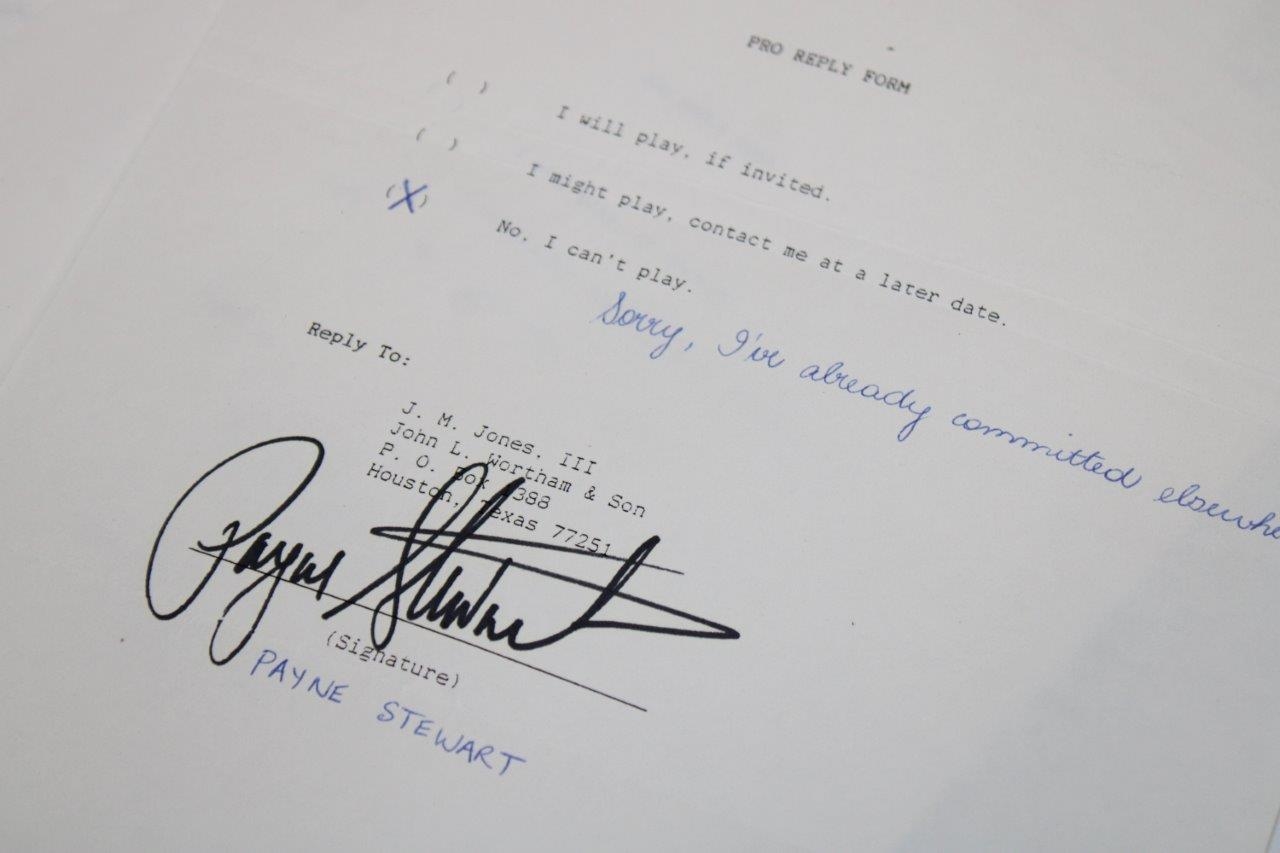 PRO REPLY FORM
( ) I will play, if invited.
( ) I might play, contact me at a later date.
(X) No, I can't play.
Sorry, I've already committed elsewhe
Reply To:
J. M. Jones, III
John L. Wortham & Son
P. O. Box 1388
Houston, Texas 77251
Payne Stewart
(Signature)
PAYNE STEWART